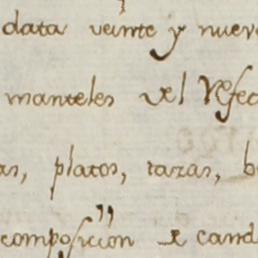 data veinte y nueve
manteles del Refec
as, platos, tazas, b
composicion de cand